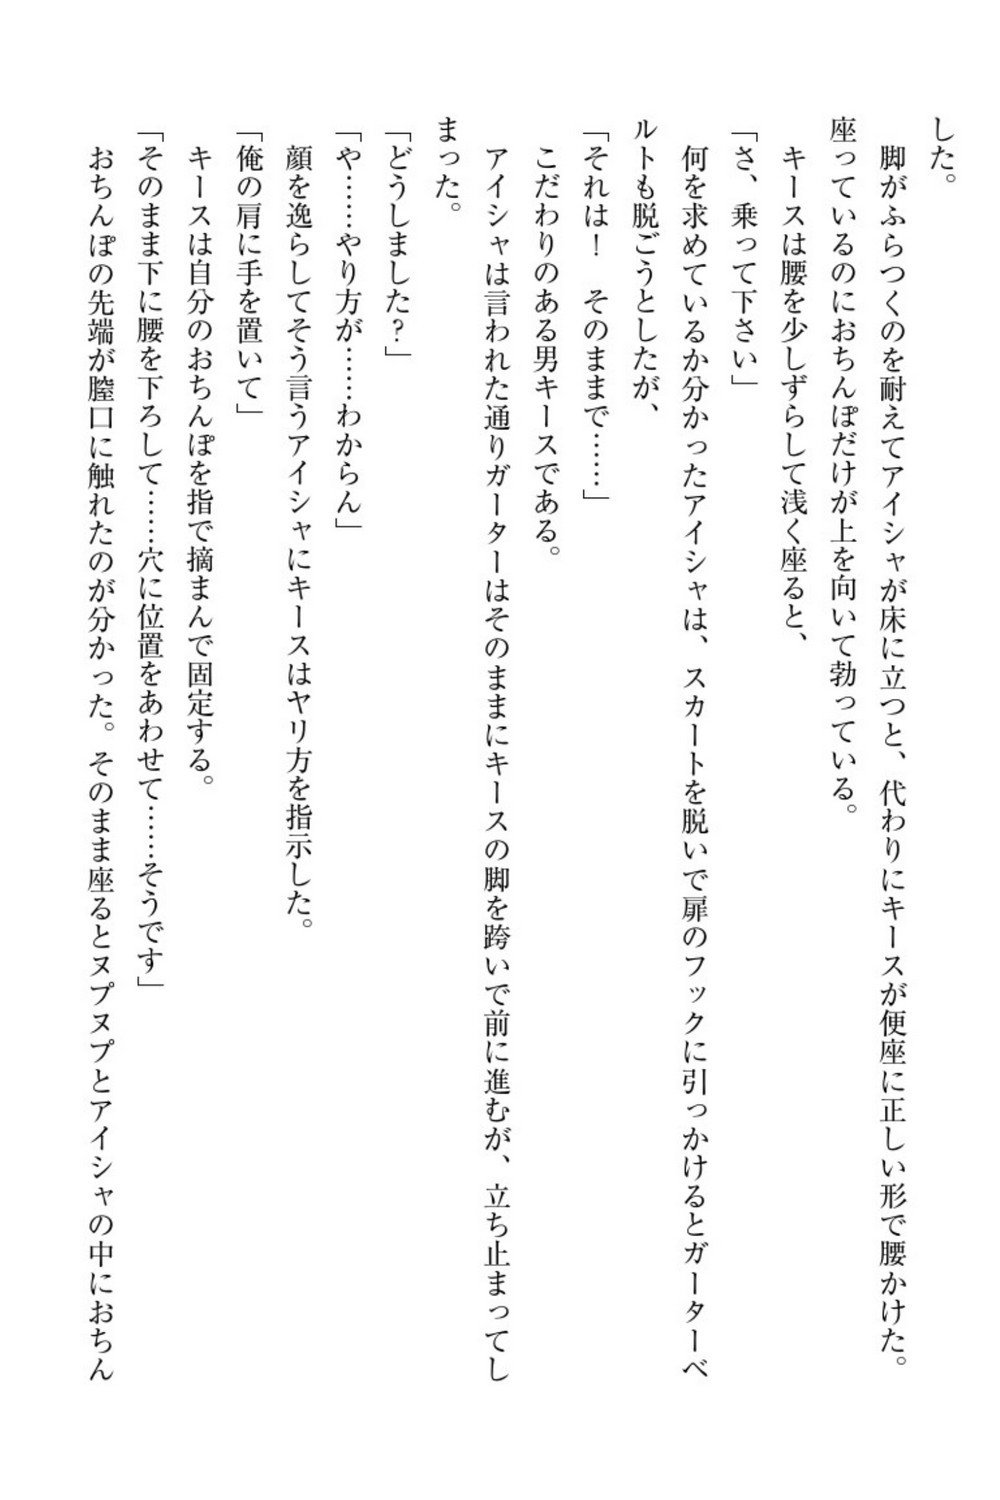 した。
　脚がふらつくのを耐えてアイシャが床に立つと、代わりにキースが便座に正しい形で腰かけた。
座っているのにおちんぽだけが上を向いて勃っている。
　キースは腰を少しずらして浅く座ると、
「さ、乗って下さい」
　何を求めているか分かったアイシャは、スカートを脱いで扉のフックに引っかけるとガーターベ
ルトも脱ごうとしたが、
「それは！　そのままで……」
　こだわりのある男キースである。
　アイシャは言われた通りガーターはそのままにキースの脚を跨いで前に進むが、立ち止まってし
まった。
「どうしました？」
「や……やり方が……わからん」
　顔を逸らしてそう言うアイシャにキースはヤリ方を指示した。
「俺の肩に手を置いて」
　キースは自分のおちんぽを指で摘まんで固定する。
「そのまま下に腰を下ろして……穴に位置をあわせて……そうです」
　おちんぽの先端が膣口に触れたのが分かった。そのまま座るとヌプヌプとアイシャの中におちん